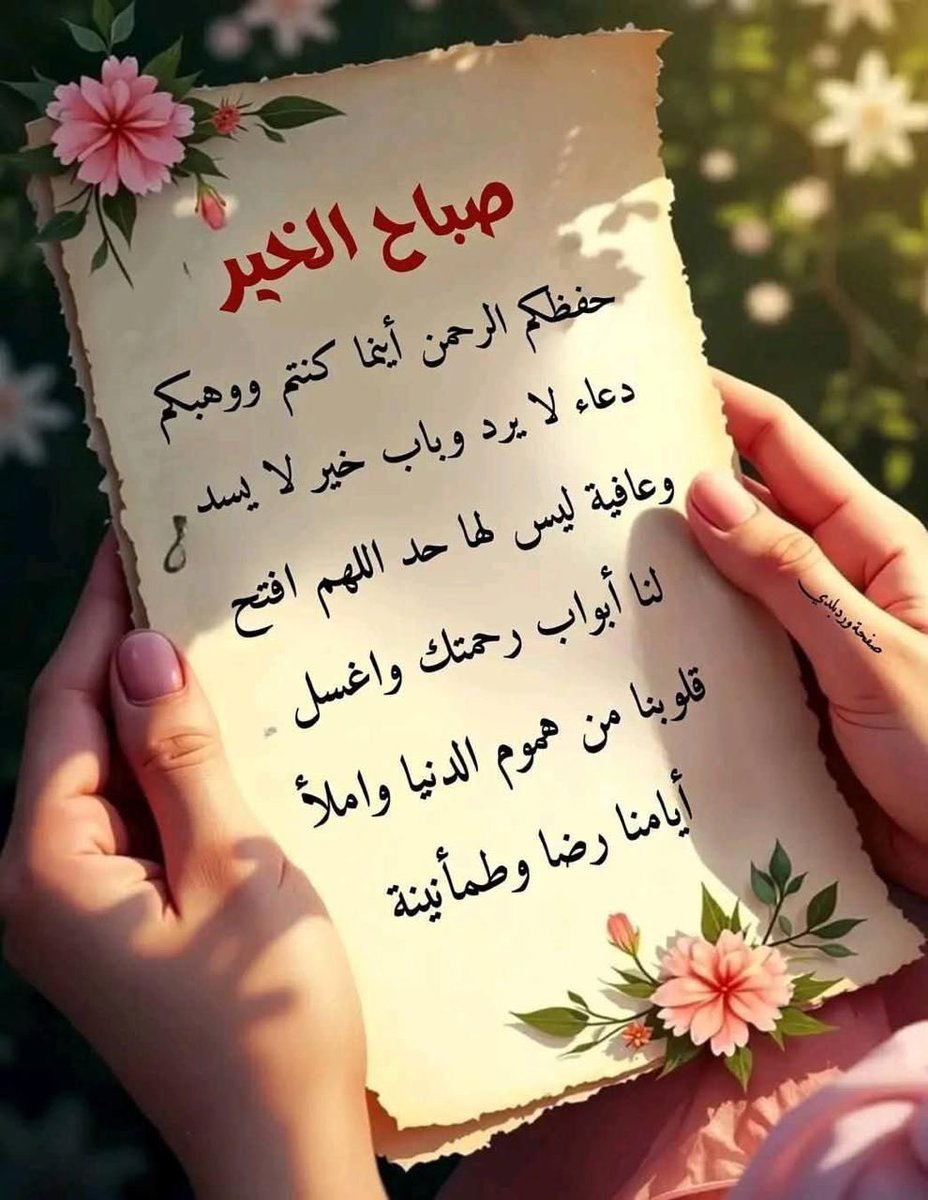 صباح الخير
حفظكم الرحمن أينما كنتم ووهبكم
دعاء لا يرد وباب خير لا يسد
وعافية ليس لها حد اللهم افتح
لنا أبواب رحمتك واغسل
قلوبنا من هموم الدنيا واملأ
أيامنا رضا وطمأنينة
صفحة ورد بلدي